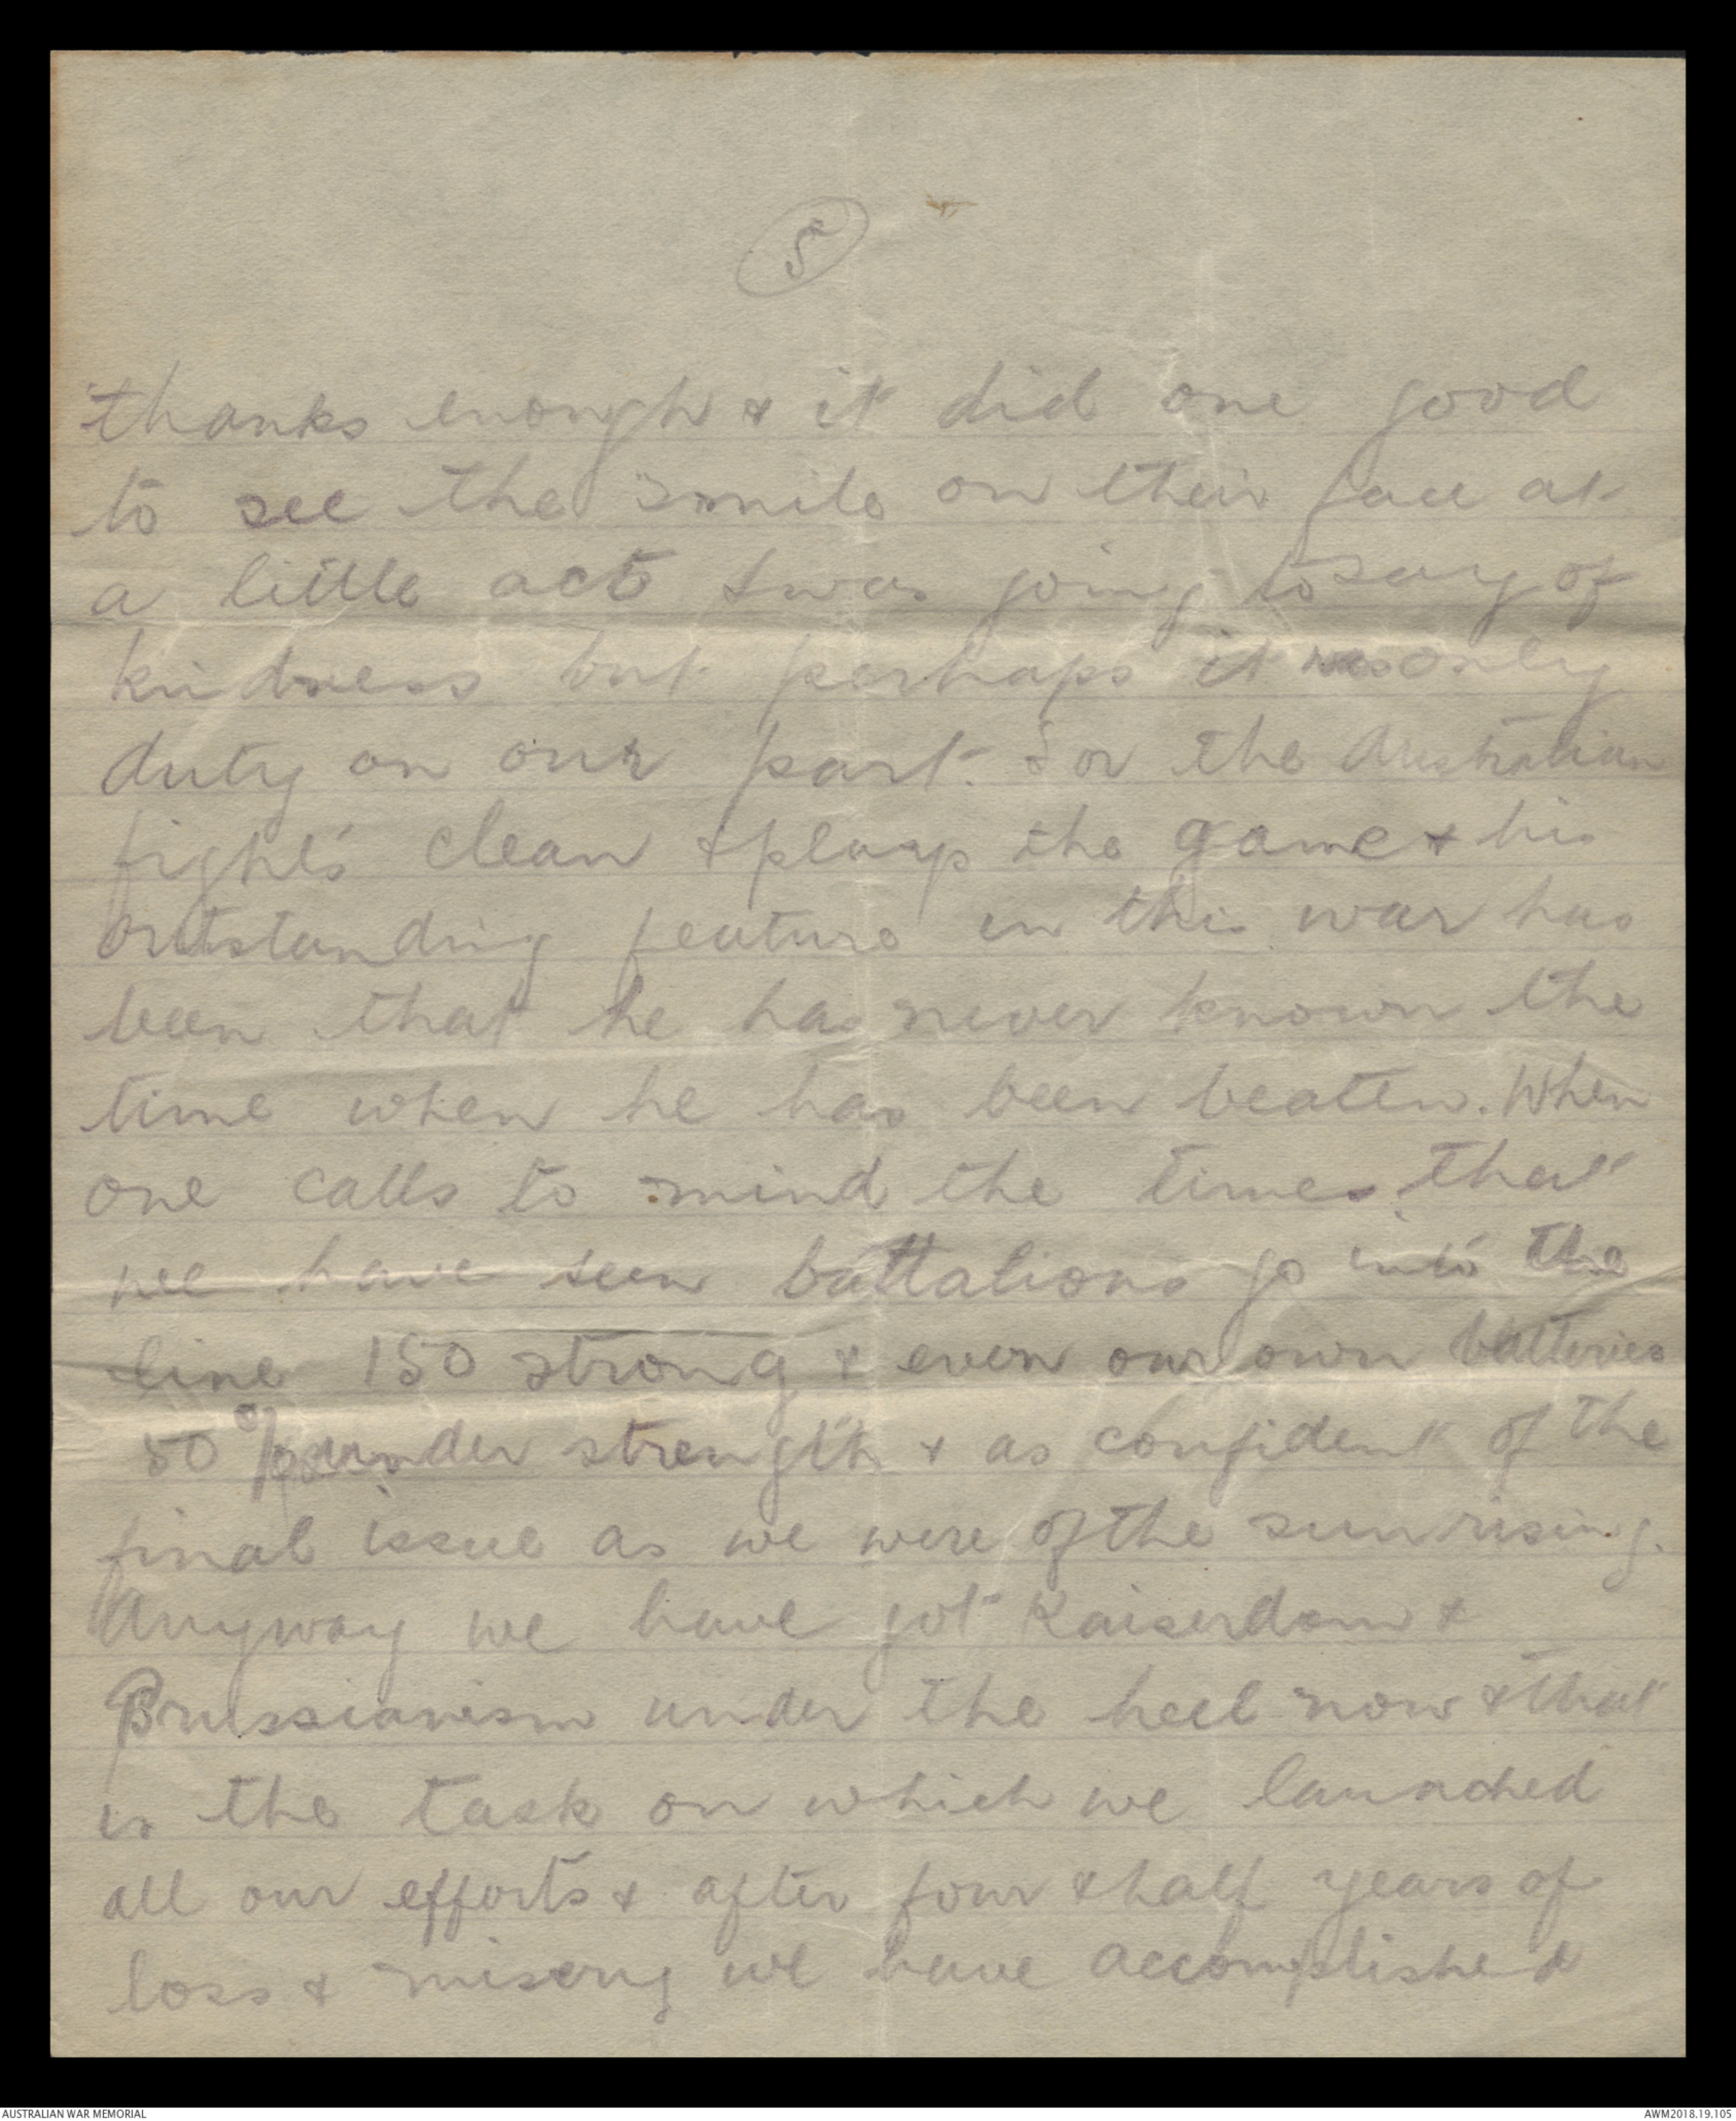 5
thanks enough & it did one good
to see the smile on their face at
a little act I was going to say of
kindness but perhaps it was only
duty on our part. For the Australian
fights clean & plays the game & his
outstanding feature in this war has
been that he has never known the
time when he has been beaten. When
one calls to mind the times that
we have seen battalions go into the
line 150 strong & even our own batteries
50% under strength & as confident of the
final issue as we were of the sun rising.
Anyway we have got Kaiserdom &
Prussianism under the heel now & that
is the task on which we launched
all our efforts & after four & half years of
loss & misery we have accomplished
AUSTRALIAN WAR MEMORIAL
AWM2018.19.105